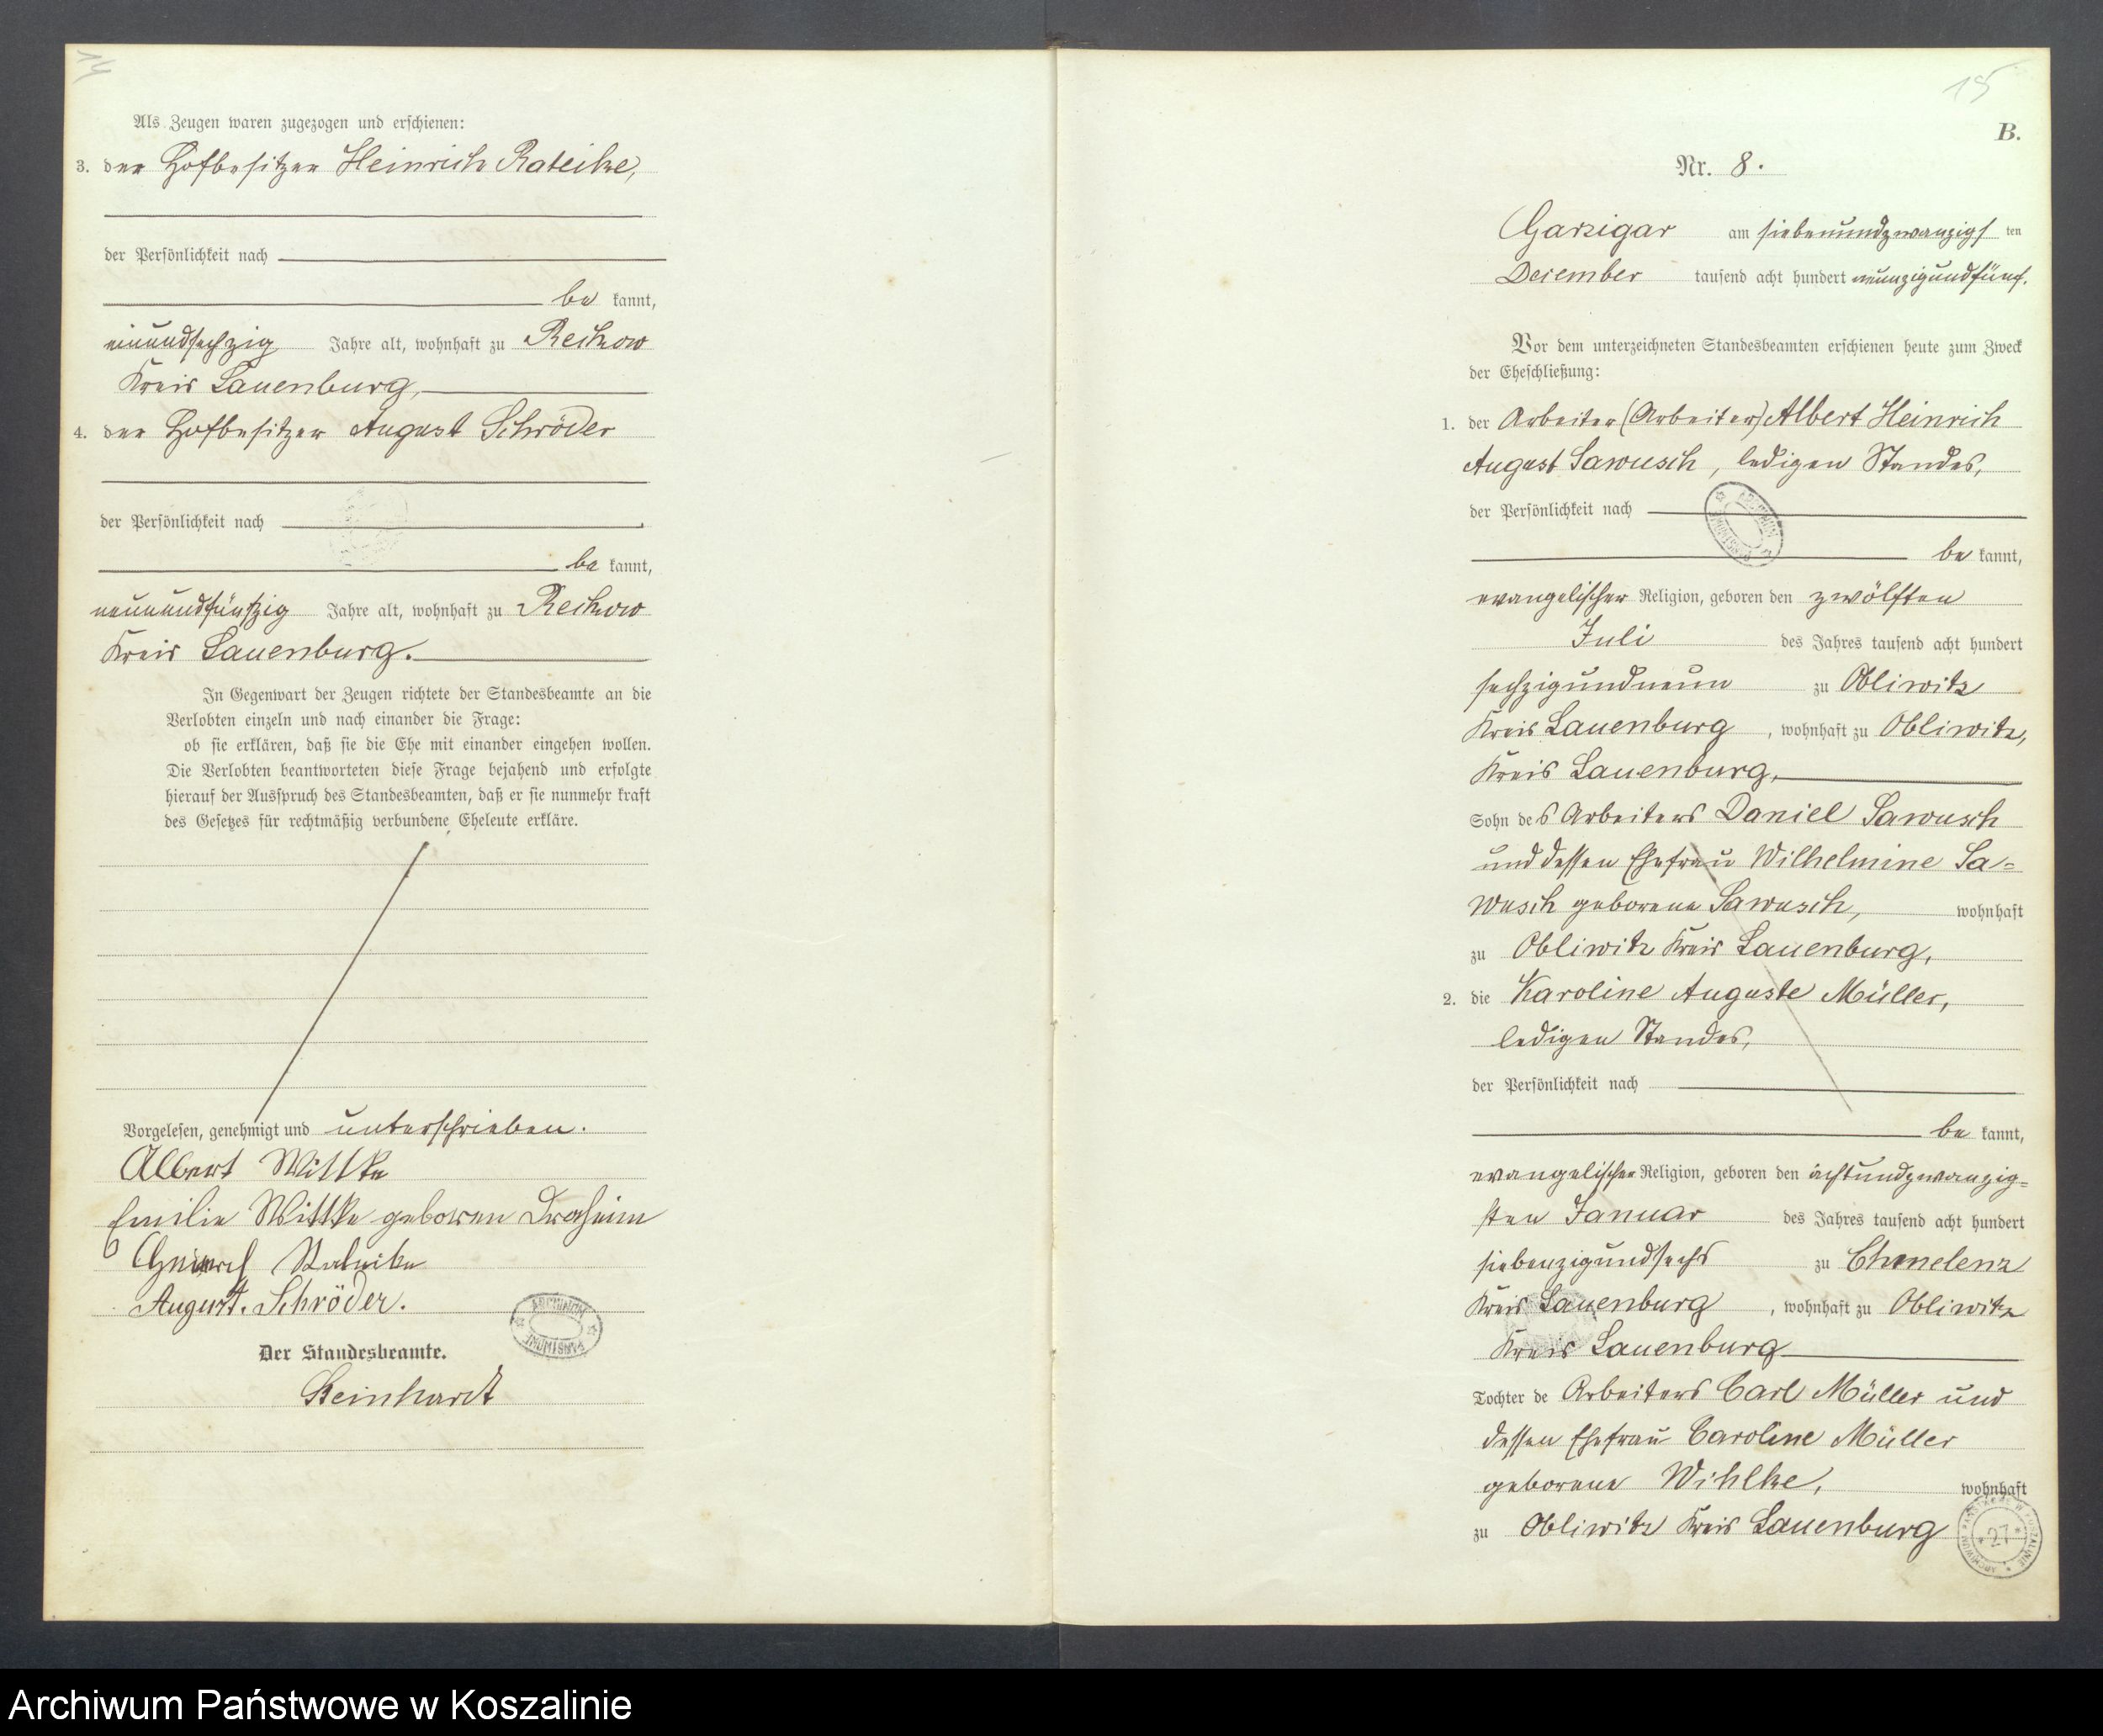 14
Als Zeugen waren zugezogen und erschienen:
3. der Hofbesitzer Heinrich Rateike,
der Persönlichkeit nach
be kannt,
einundsechzig Jahre alt, wohnhaft zu Reckow
Kreis Lauenburg,
4. der Hofbesitzer August Schröder
der Persönlichkeit nach
be kannt,
neunundfünfzig Jahre alt, wohnhaft zu Reckow
Kreis Lauenburg.
In Gegenwart der Zeugen richtete der Standesbeamte an die
Verlobten einzeln und nach einander die Frage:
ob sie erklären, daß sie die Ehe mit einander eingehen wollen.
Die Verlobten beantworteten diese Frage bejahend und erfolgte
hierauf der Ausspruch des Standesbeamten, daß er sie nunmehr kraft
des Gesetzes für rechtmäßig verbundene Eheleute erkläre.
Vorgelesen, genehmigt und unterschrieben.
Albert Wittke
Emilie Wittke geboren Draheim
Heinrich Rateike
August. Schröder.
ARCHIWUM PAŃSTWOWE
Der Standesbeamte.
Reinhardt
15
B.
Nr. 8.
Garzigar am siebenundzwanzigs ten
Dezember tausend acht hundert neunzigundfünf.
Vor dem unterzeichneten Standesbeamten erschienen heute zum Zweck
der Eheschließung:
1. der Arbeiter (Arbeiter) Albert Heinrich
August Sawusch, ledigen Standes,
der Persönlichkeit nach
be kannt,
evangelischer Religion, geboren den zwölften
Juli des Jahres tausend acht hundert
sechzigundneun zu Obliwitz
Kreis Lauenburg, wohnhaft zu Obliwitz,
Kreis Lauenburg,
Sohn des Arbeiters Daniel Sawusch
und dessen Ehefrau Wilhelmine Sa=
wusch geborene Sawusch, wohnhaft
zu Obliwitz Kreis Lauenburg,
2. die Karoline Auguste Müller,
ledigen Standes,
der Persönlichkeit nach
be kannt,
evangelischer Religion, geboren den achtundzwanzig=
sten Januar des Jahres tausend acht hundert
siebenzigundsechs zu Chmelenz
Kreis Lauenburg, wohnhaft zu Obliwitz
Kreis Lauenburg
Tochter de Arbeiters Carl Müller und
dessen Ehefrau Caroline Müller
geborene Wihlke, wohnhaft
zu Obliwitz Kreis Lauenburg
ARCHIWUM PAŃSTWOWE W KOSZALINIE * 27 *
Archiwum Państwowe w Koszalinie